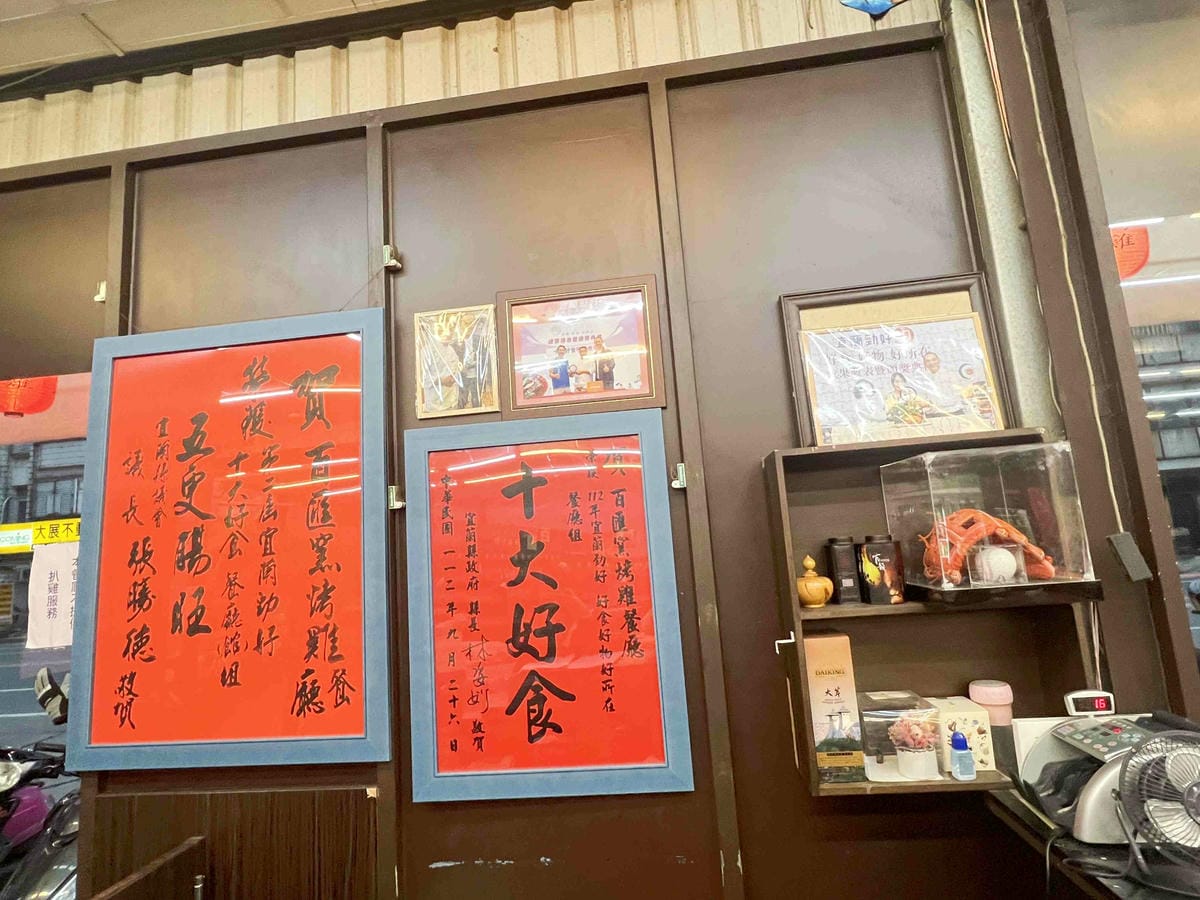 賀 百匯窯烤雞餐廳
榮獲第二屆宜蘭勁好
十大好食 餐廳(館)組
五更腸旺
宜蘭縣議會
議長 張勝德 敬賀
百匯窯烤雞餐廳
榮獲 112年宜蘭勁好 好食好物好所在
餐廳組
十大好食
宜蘭縣政府 縣長 林姿妙 敬賀
中華民國一一二年九月二十六日
物 好所在
DAIKING
16
大展不動
扒雞服務